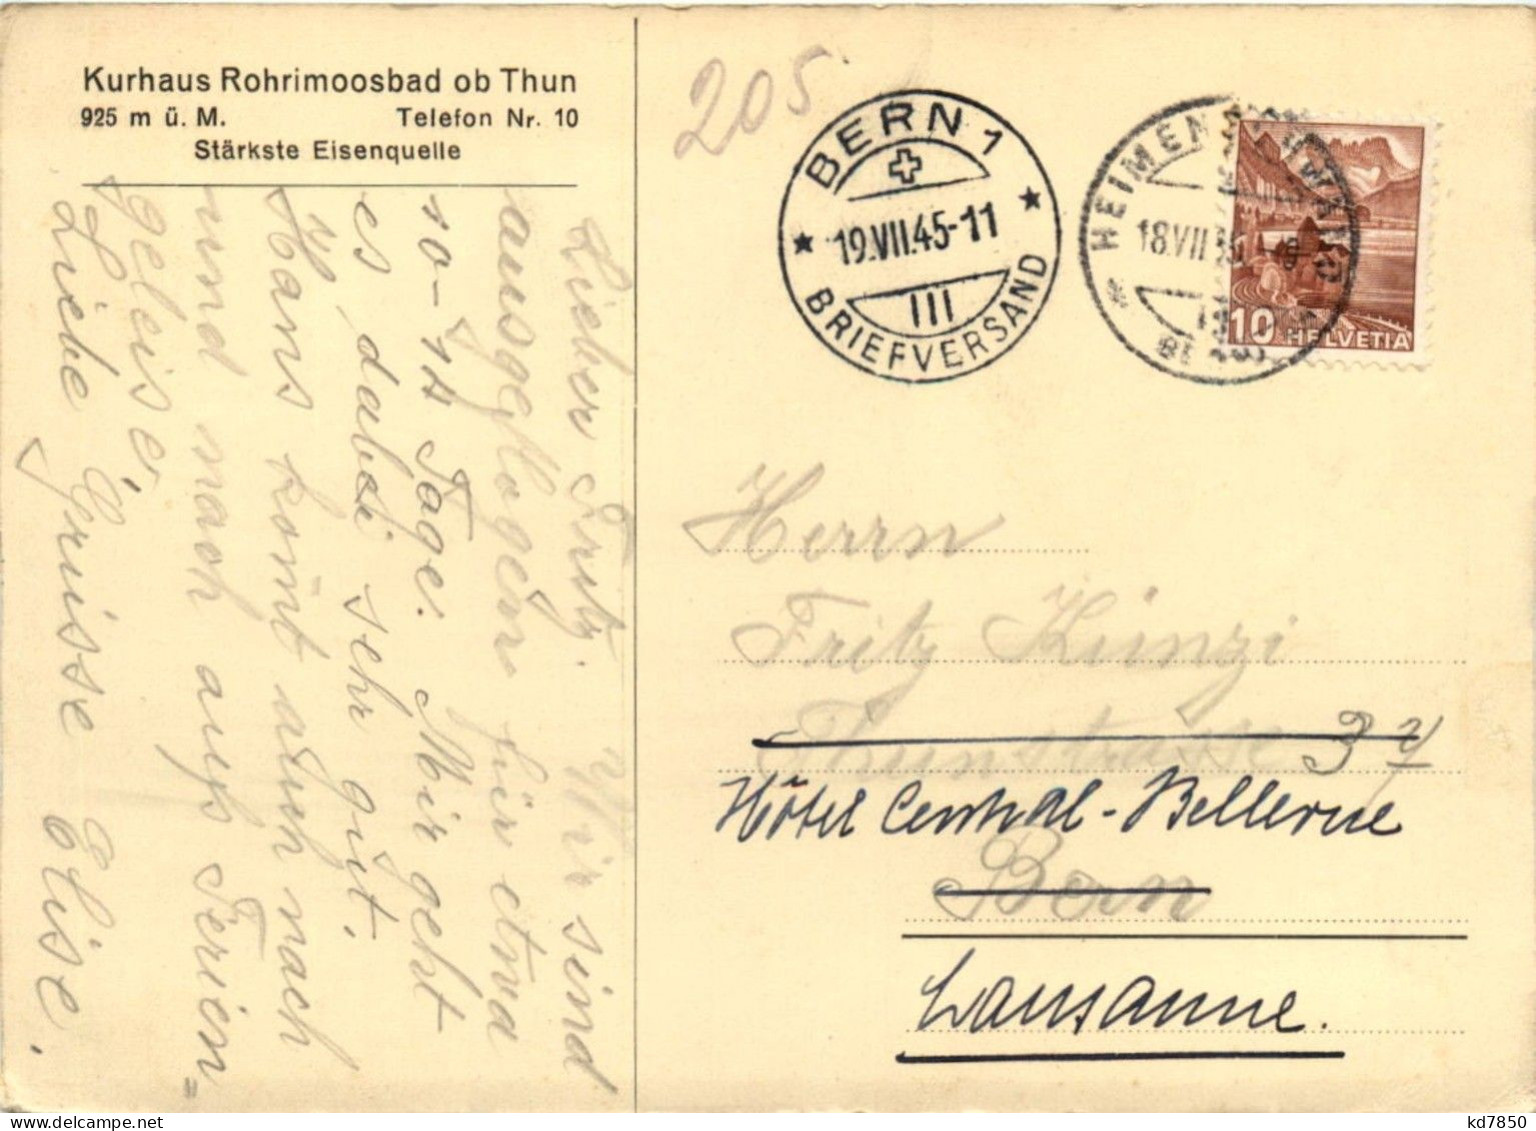 Kurhaus Rohrimoosbad ob Thun
925 m ü. M. Telefon Nr. 10
Stärkste Eisenquelle
Lieber Fritz. Wir sind
ausgeflogen für etwa
10-14 Tage. Mir geht
es dabei sehr gut.
Hans komt auch nach
und nach aufs Ferien=
geleise.
Liebe Grüsse Elise.
205
BERN 1
19.VII.45-11
III
BRIEFVERSAND
HEIMENSCHWAND
18.VII
10 HELVETIA
Herrn
Fritz Künzi
Thunstrasse 37
Hôtel Central-Bellevue
Bern
Lausanne.
kd7850